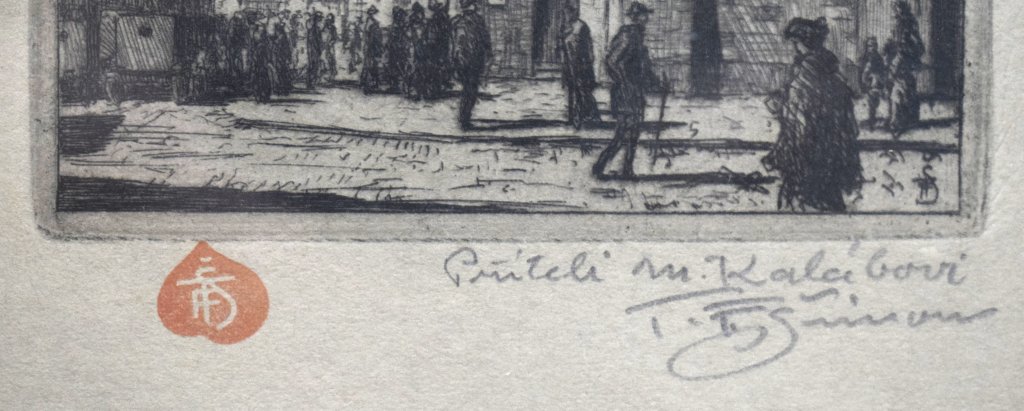 Příteli M. Kalábovi
T. F. Šimon